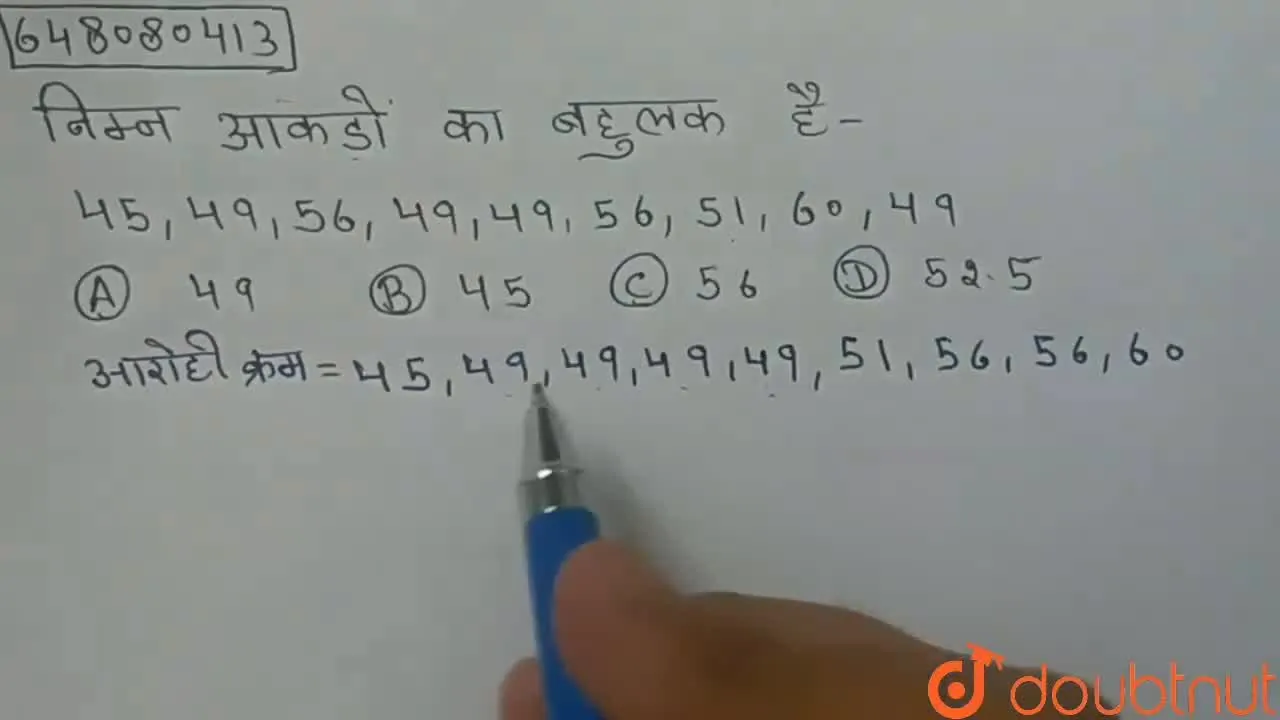 648080413
निम्न आकडों का बहुलक है-
45, 49, 56, 49, 49, 56, 51, 60, 49
(A) 49 (B) 45 (C) 56 (D) 52.5
आरोही क्रम = 45, 49, 49, 49, 49, 51, 56, 56, 60
doubtnut